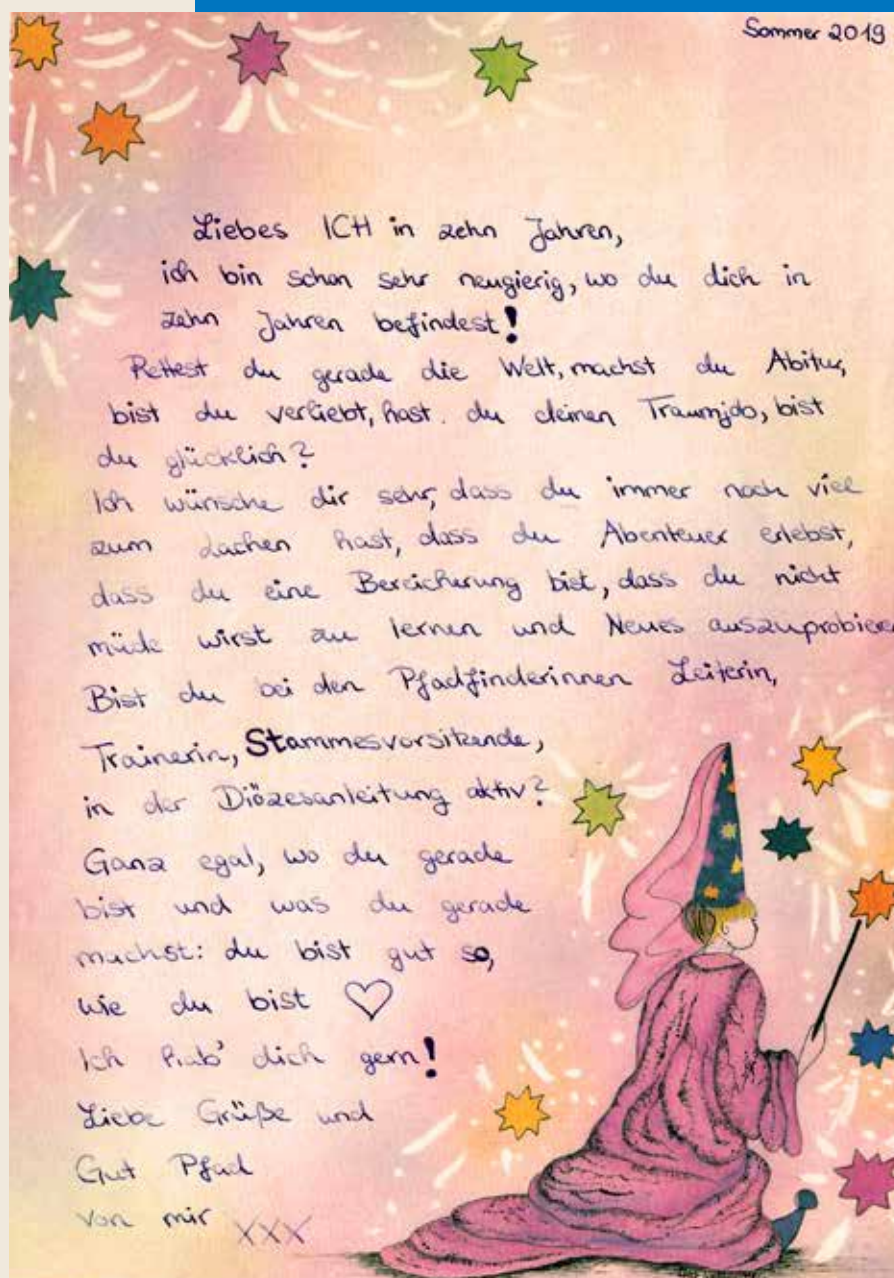 Sommer 2019
Liebes ICH in zehn Jahren,
ich bin schon sehr neugierig, wo du dich in
zehn Jahren befindest!
Rettest du gerade die Welt, machst du Abitur,
bist du verliebt, hast du deinen Traumjob, bist
du glücklich?
Ich wünsche dir sehr, dass du immer noch viel
zum Lachen hast, dass du Abenteuer erlebst,
dass du eine Bereicherung bist, dass du nicht
müde wirst zu lernen und Neues auszuprobieren
Bist du bei den Pfadfinderinnen Leiterin,
Trainerin, Stammesvorsitzende,
in der Diözesanleitung aktiv?
Ganz egal, wo du gerade
bist und was du gerade
machst: du bist gut so,
wie du bist ♡
Ich hab' dich gern!
Liebe Grüße und
Gut Pfad
von mir XXX